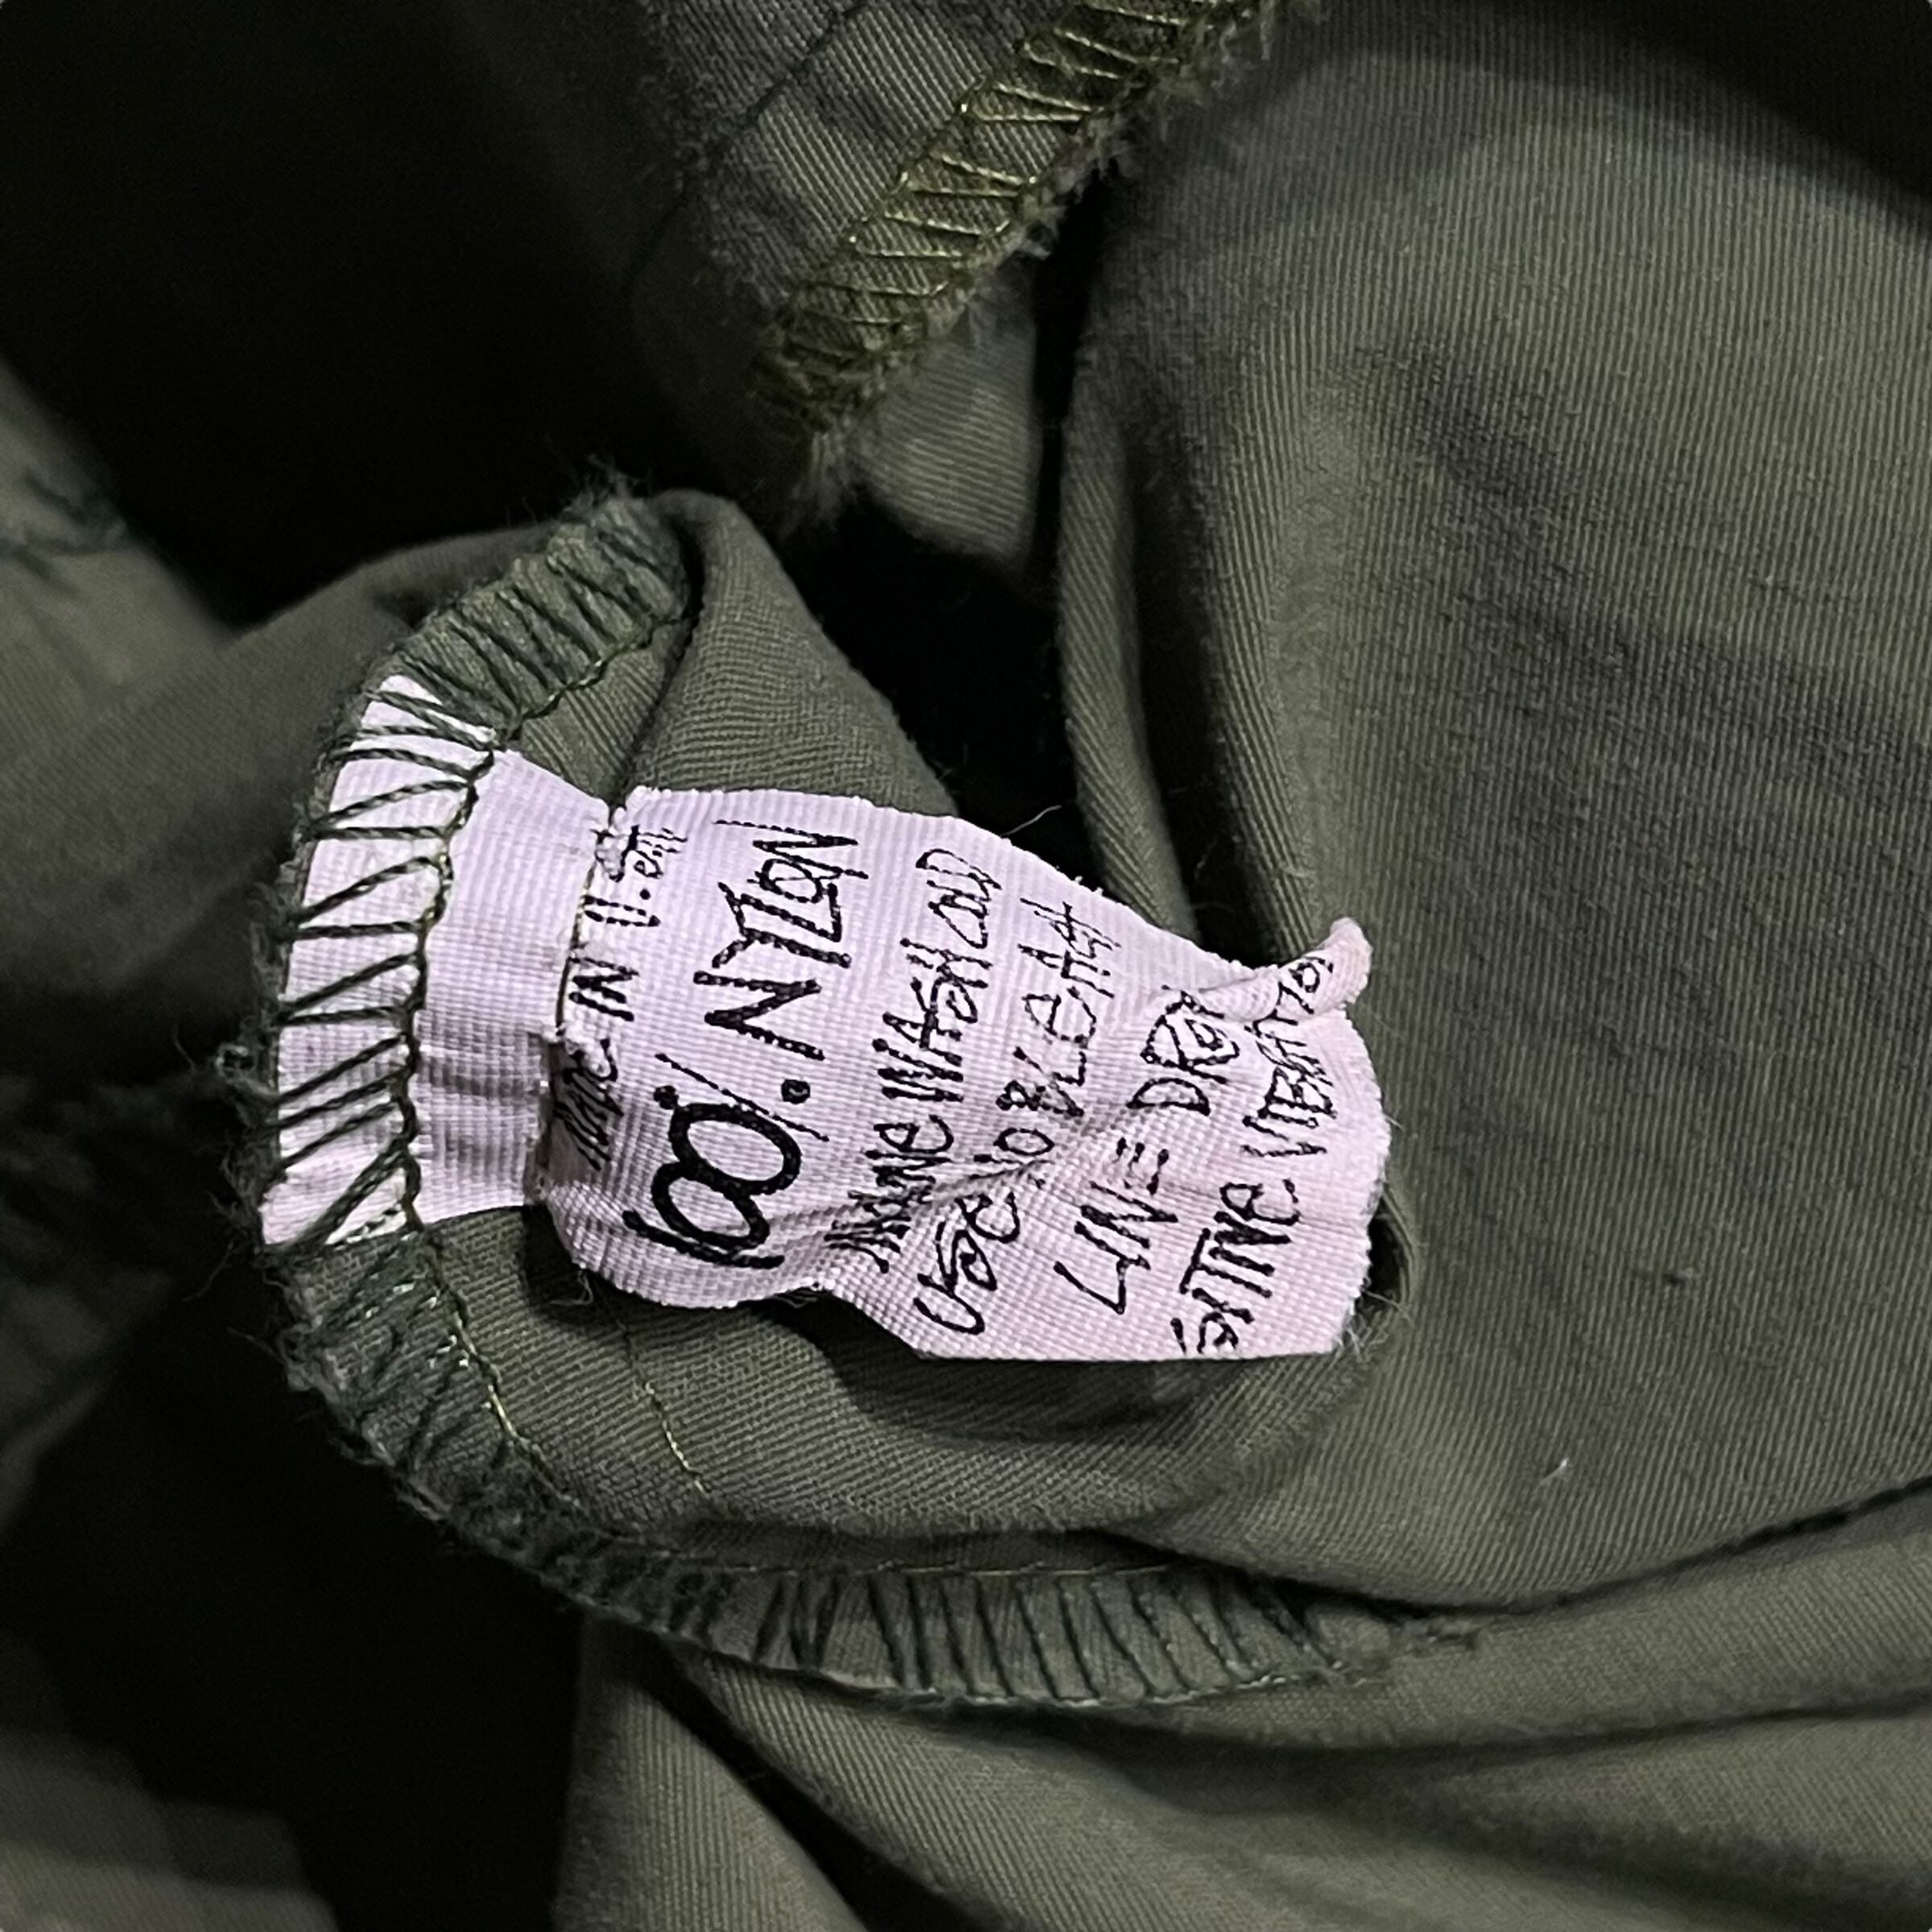 MADE IN
100% NYLON
MACHINE WASH COLD
USE NO BLEACH
LINE DRY